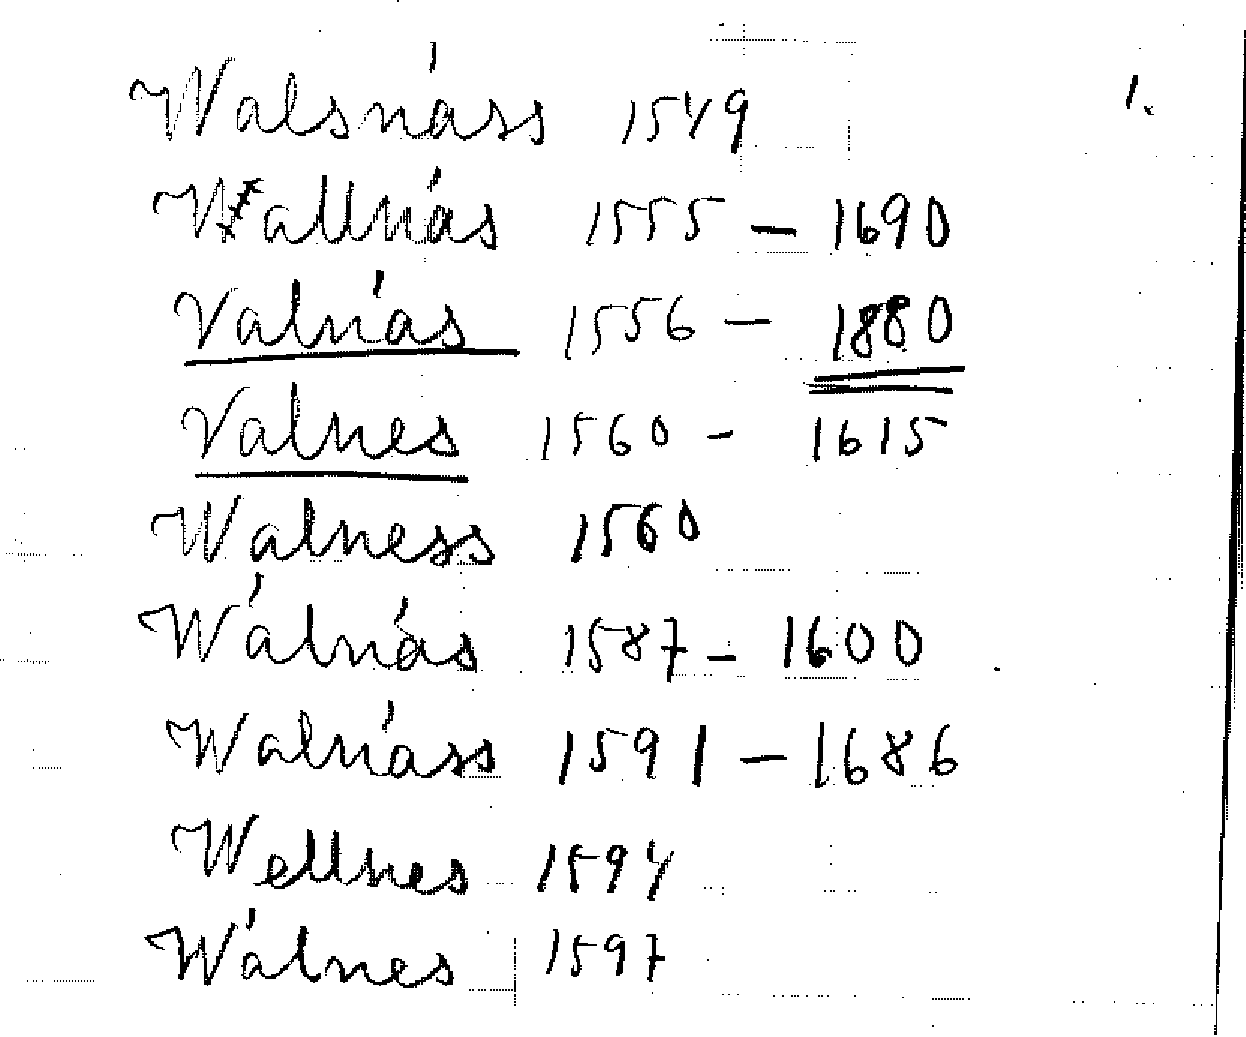 Walsnáss 1549 1.
Wallnás 1555 – 1690
Valnás 1556 – 1880
Valnes 1560 – 1615
Walness 1560
Wálnás 1587 – 1600
Walnáss 1591 – 1686
Wellnes 1594
Wálnes 1597